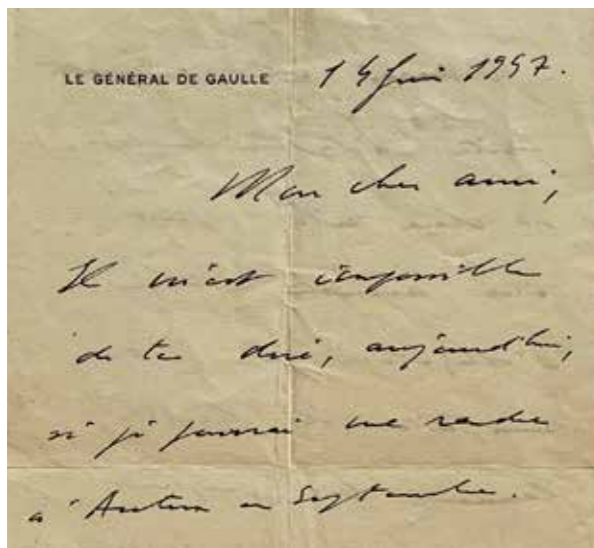 LE GÉNÉRAL DE GAULLE 14 Juin 1947.
Mon cher ami,
Il m'est impossible
de te dire, aujourd'hui,
si je pourrai me rendre
à Autun en Septembre.